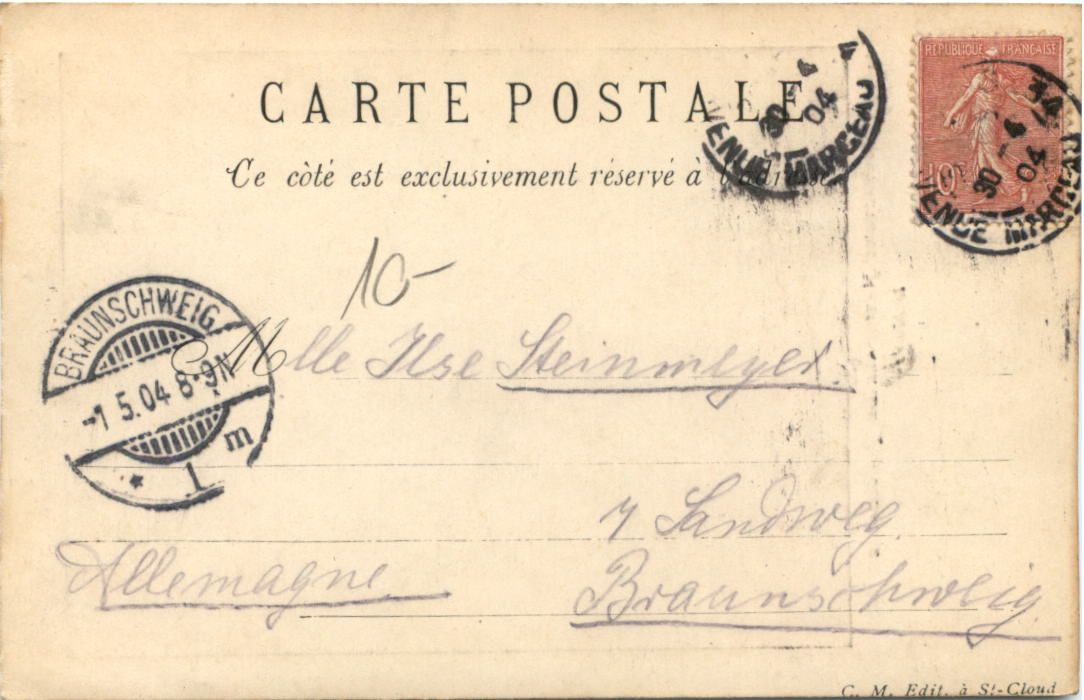 CARTE POSTALE
Ce côté est exclusivement réservé à l'adresse
RÉPUBLIQUE FRANÇAISE
10
34
30 - 4
04
AVENUE MARCEAU
4
30 - 4
04
VENUE MARCEAU
10-
BRAUNSCHWEIG
-1 5.04 8-9N
* 1 m
Mlle Ilse Steinmeyer
7 Sandweg.
Allemagne
Braunschweig
C. M. Edit. à St-Cloud